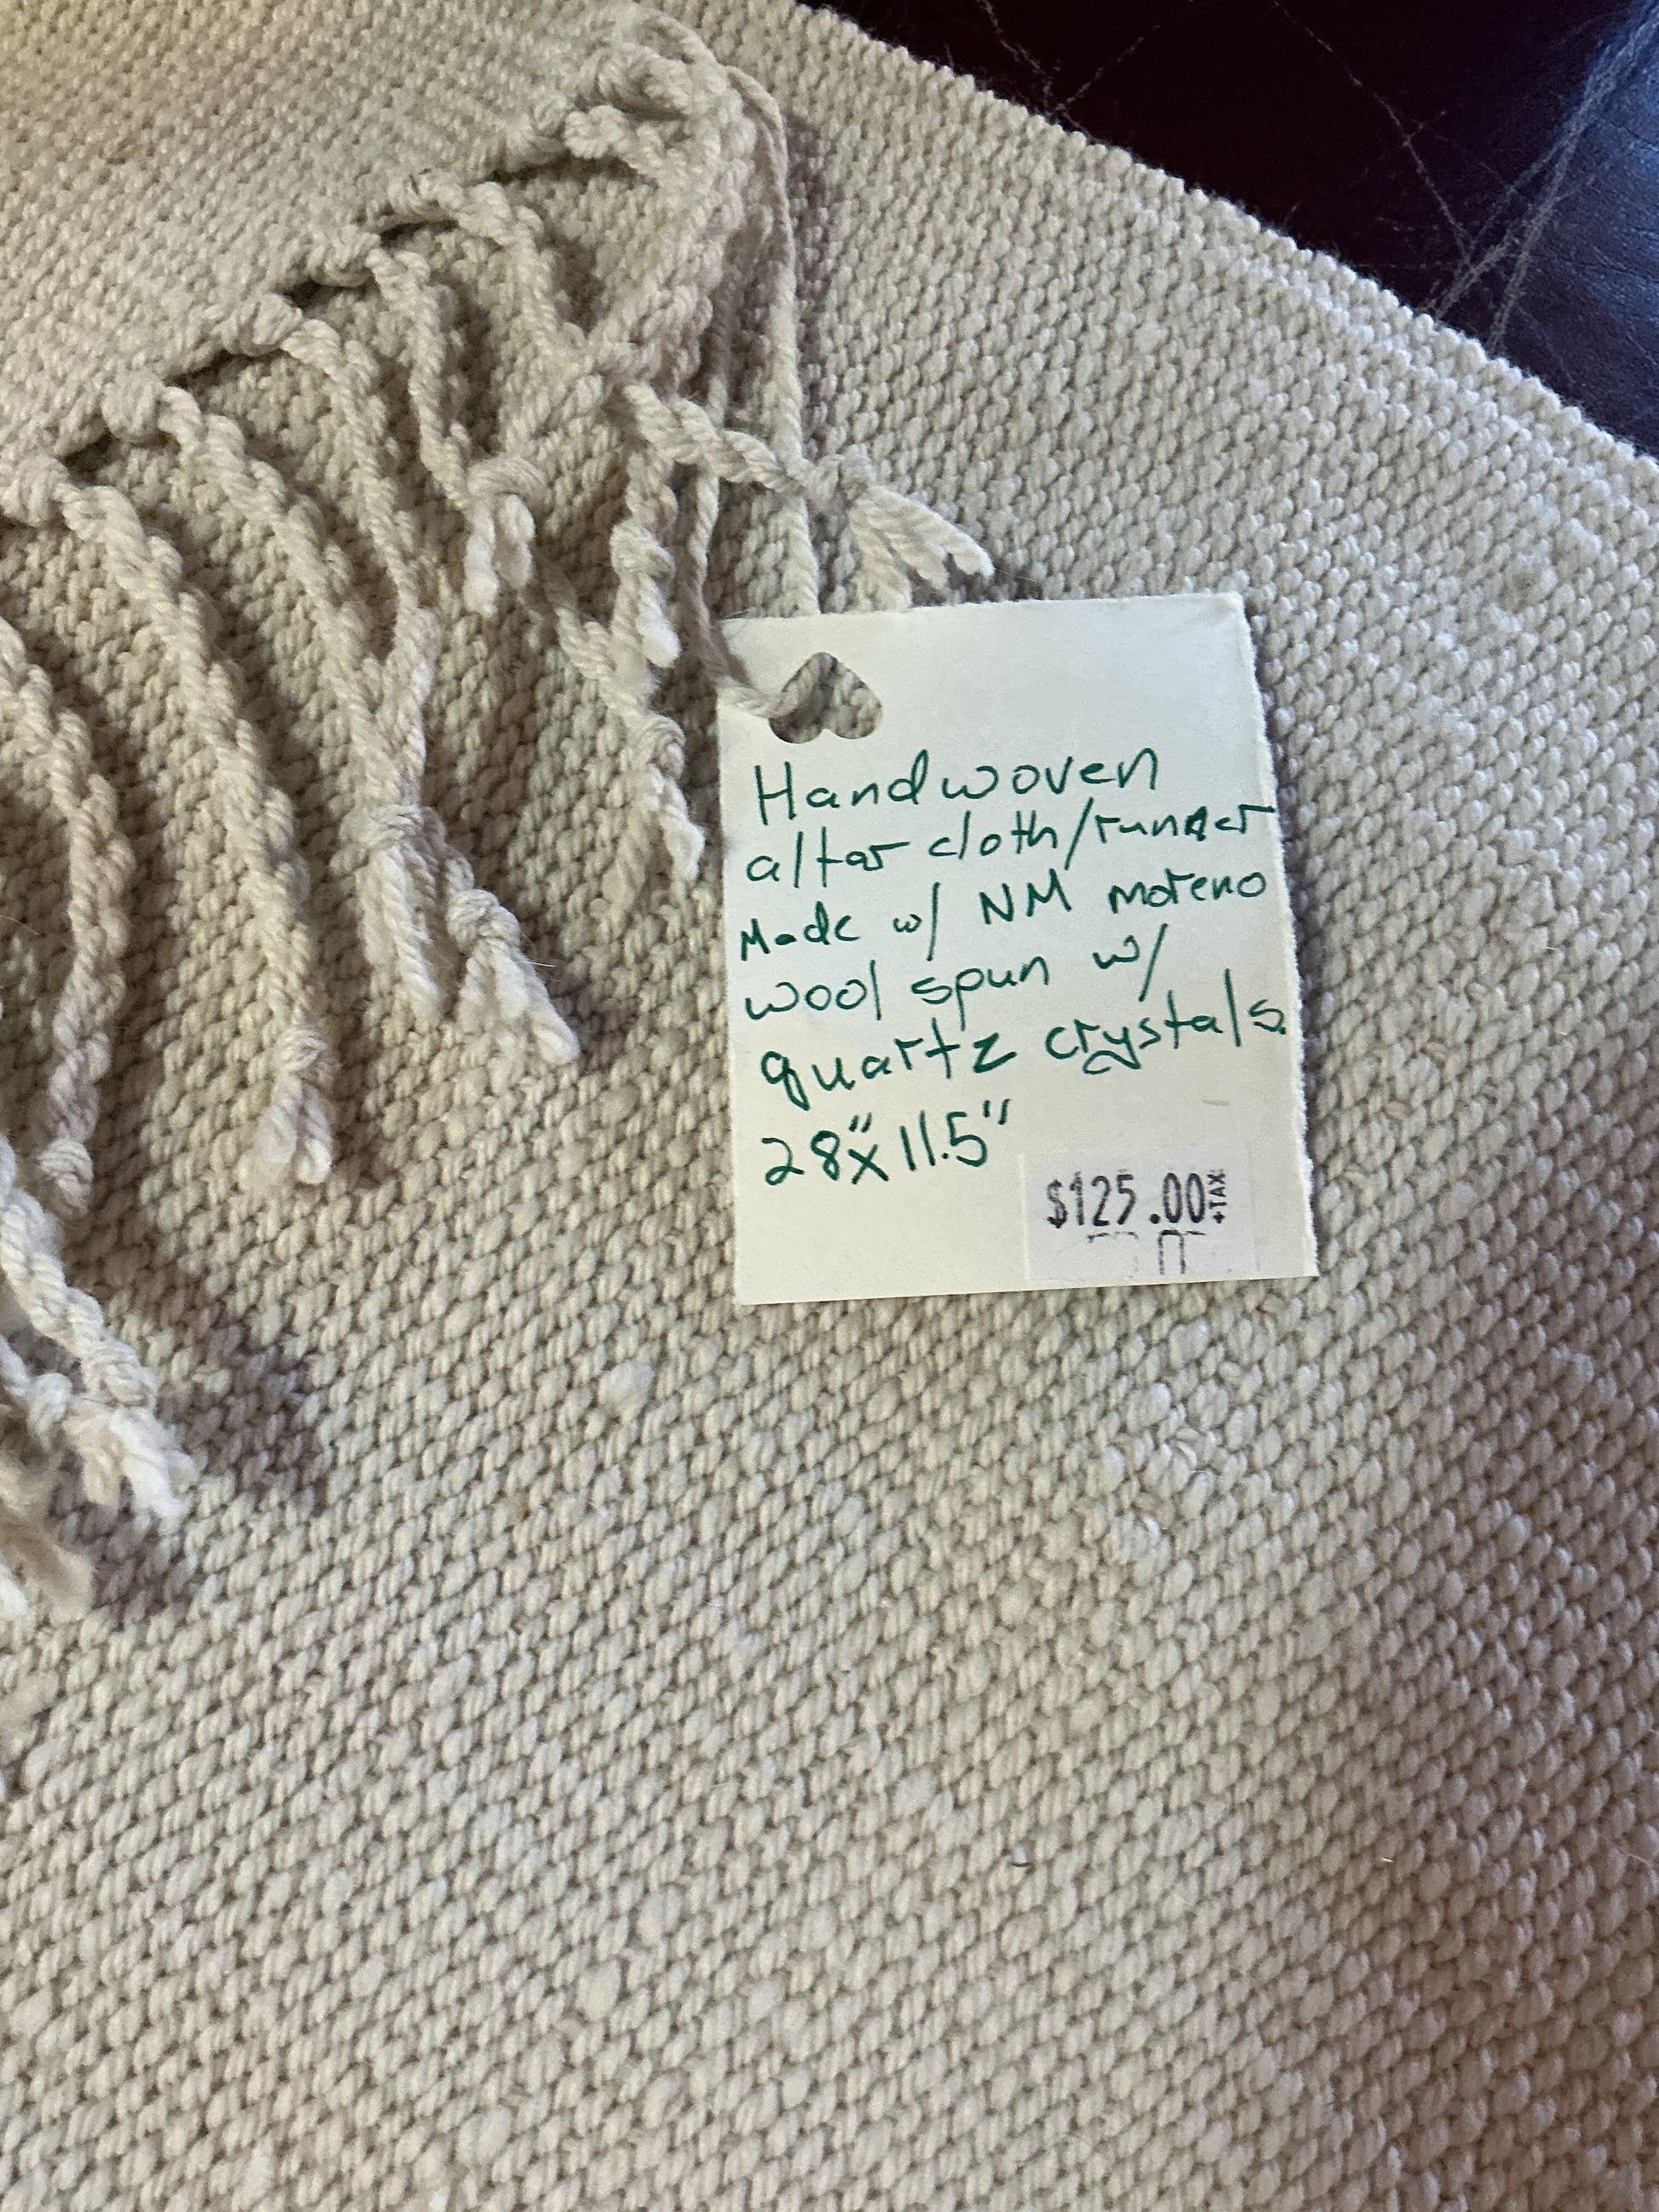 Handwoven
altar cloth/runner
Made w/ NM moreno
wool spun w/
quartz crystals.
28"x11.5"
$125.00+TAX